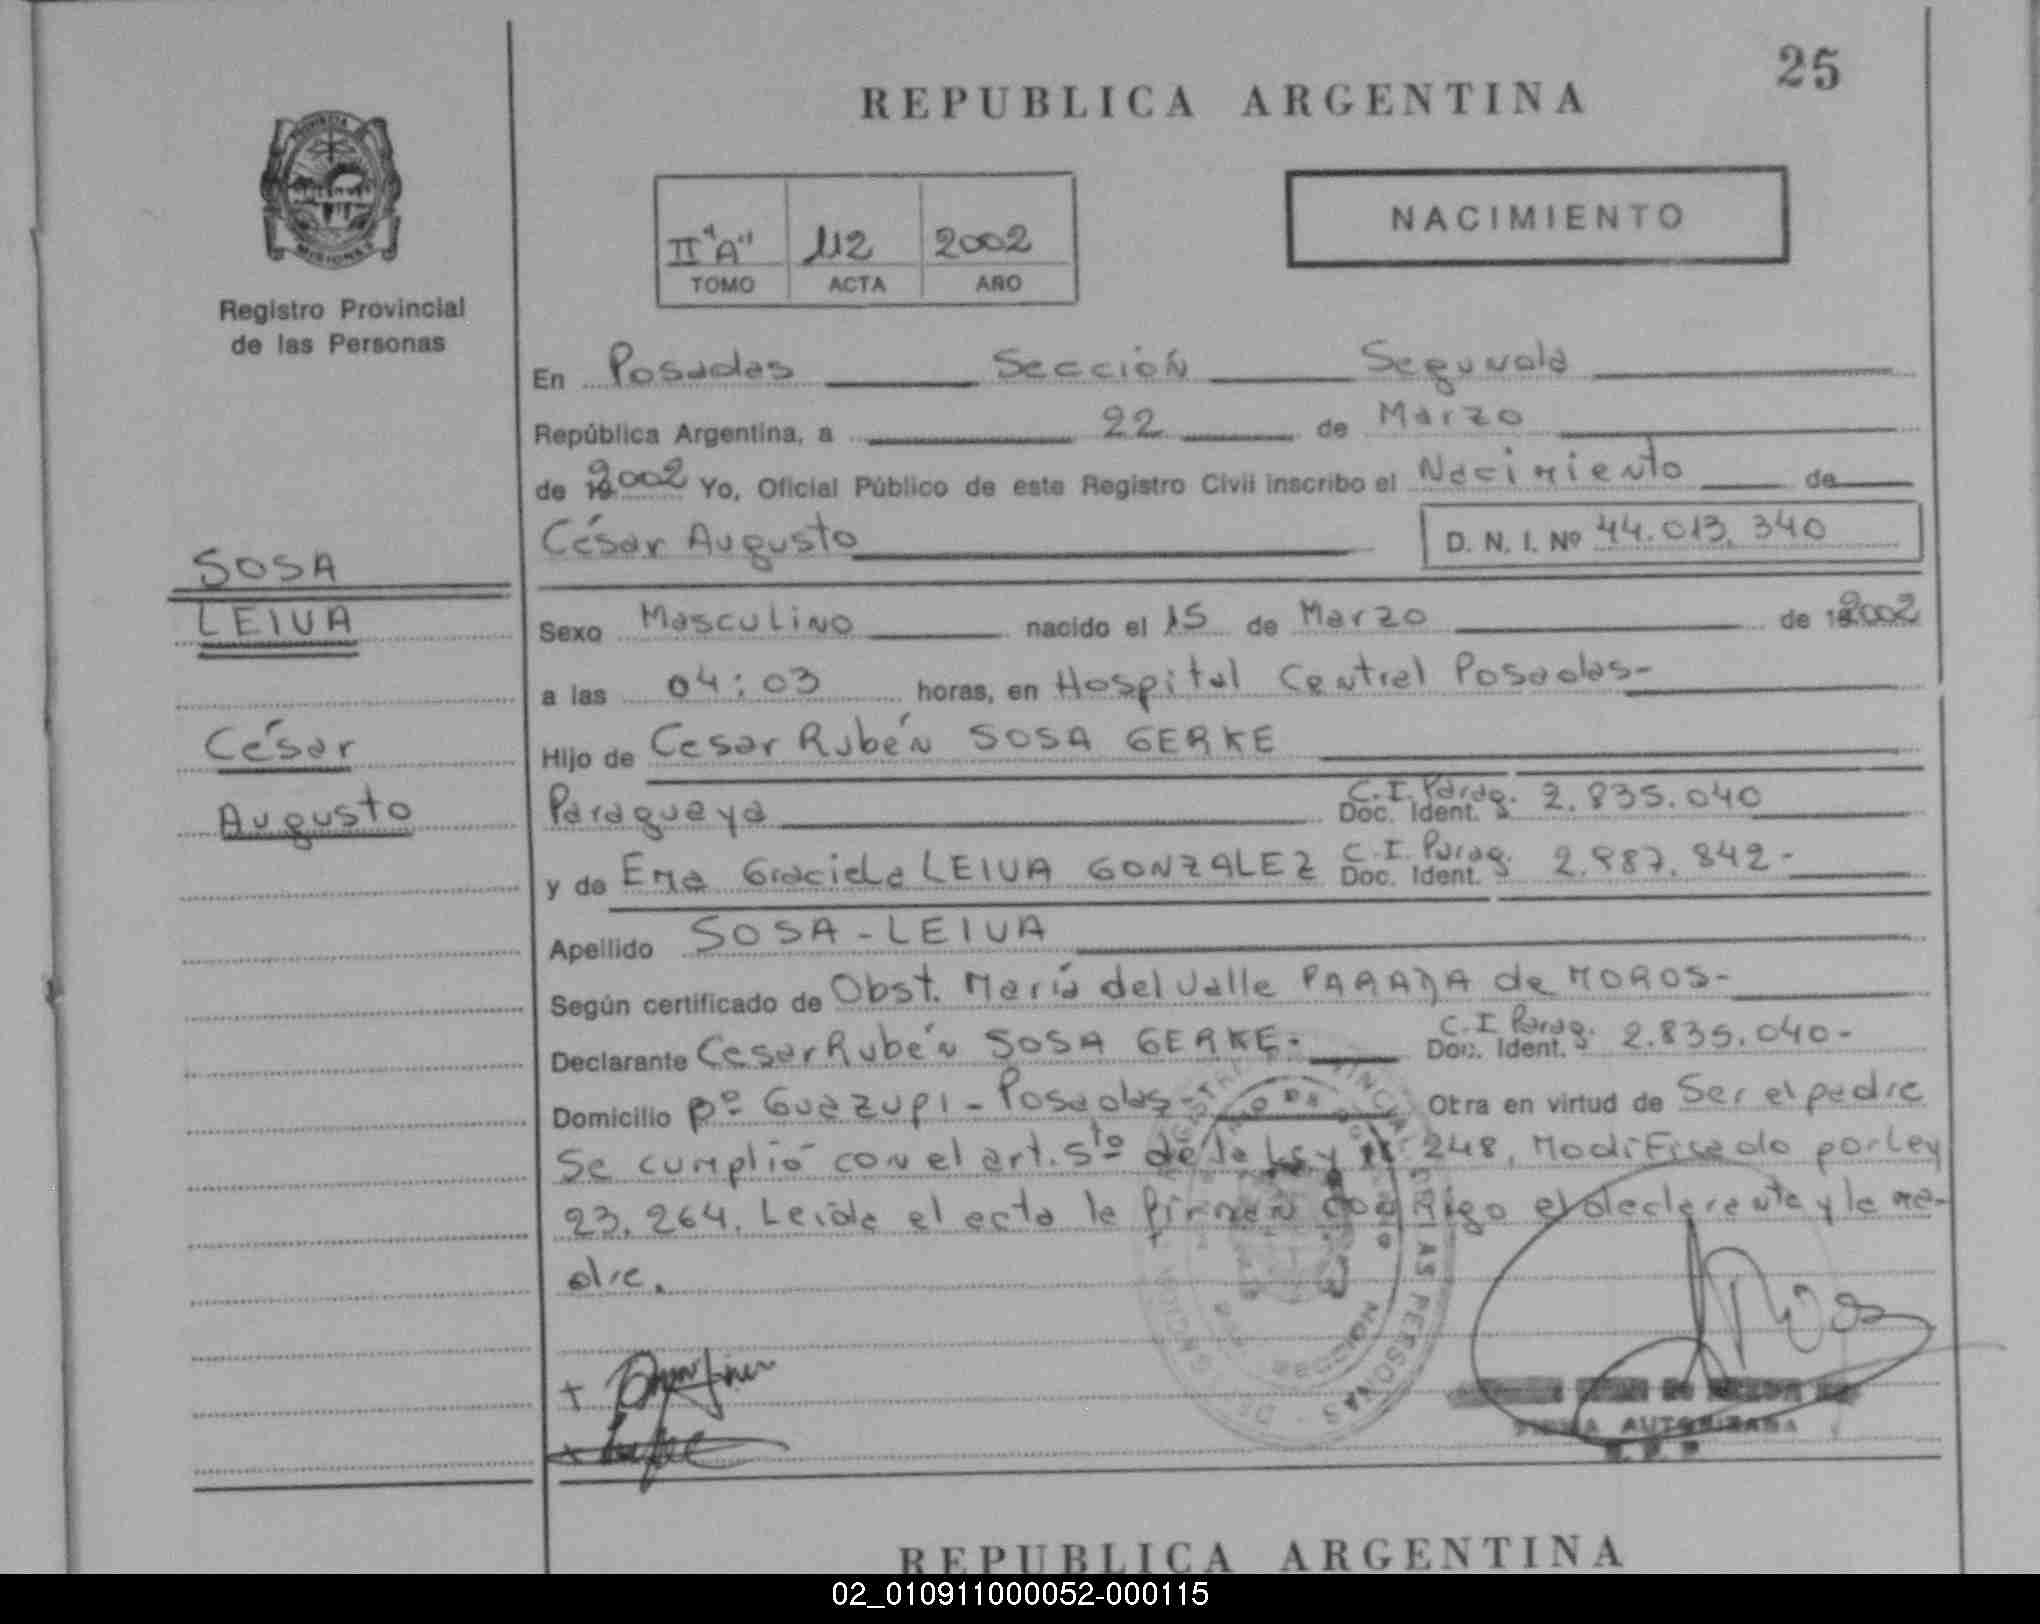 25
REPUBLICA ARGENTINA
PROVINCIA DE
MISIONES
Registro Provincial
de las Personas
II "A" 112 2002
TOMO ACTA AÑO
NACIMIENTO
En Posadas Sección Segunda
República Argentina, a 22 de Marzo
de 2002 Yo, Oficial Público de este Registro Civil inscribo el Nacimiento de
César Augusto D. N. I. Nº 44.013.340
SOSA
LEIVA
César
Augusto
Sexo Masculino nacido el 15 de Marzo de 2002
a las 04:03 horas, en Hospital Central Posadas-
Hijo de Cesar Rubén SOSA GERKE
Paraguaya C.I. Parag. Doc. Ident. 2.835.040
y de Ema Graciela LEIVA GONZALEZ C.I. Parag. Doc. Ident. 2.987.842-
Apellido SOSA - LEIVA
Según certificado de Obst. María del Valle PARADA de MOROS-
Declarante Cesar Rubén SOSA GERKE.- C.I Parag. Doc. Ident. 2.835.040-
Domicilio Bº Guazupi - Posadas- Otra en virtud de Ser el padre
Se cumplió con el art. 5to de la Ley 18.248, Modificado por Ley
23.264. Leida el acta la firman conmigo el declarante y la ma-
dre.
FIRMA AUTORIZADA
REPUBLICA ARGENTINA
02_010911000052-000115